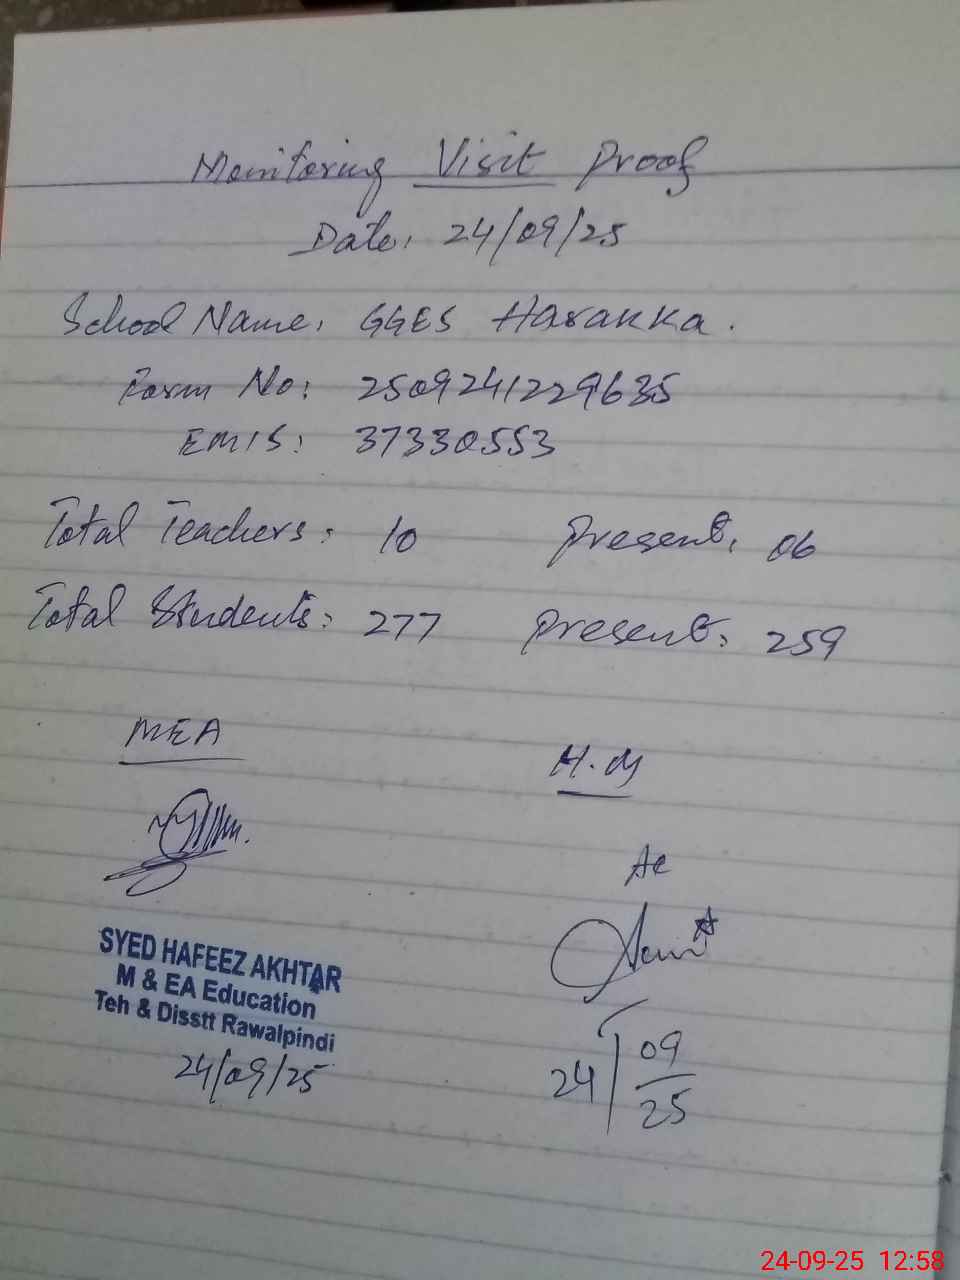 Monitoring Visit Proof
Date: 24/09/25
School Name: GGES Harakka.
Form No: 2509241229635
EMIS: 37330553
Total Teachers: 10 Present: 06
Total Students: 277 Present: 259
MEA
H.M
SYED HAFEEZ AKHTAR
M & EA Education
Teh & Disstt Rawalpindi
24/09/25
24/09/25
24-09-25 12:58